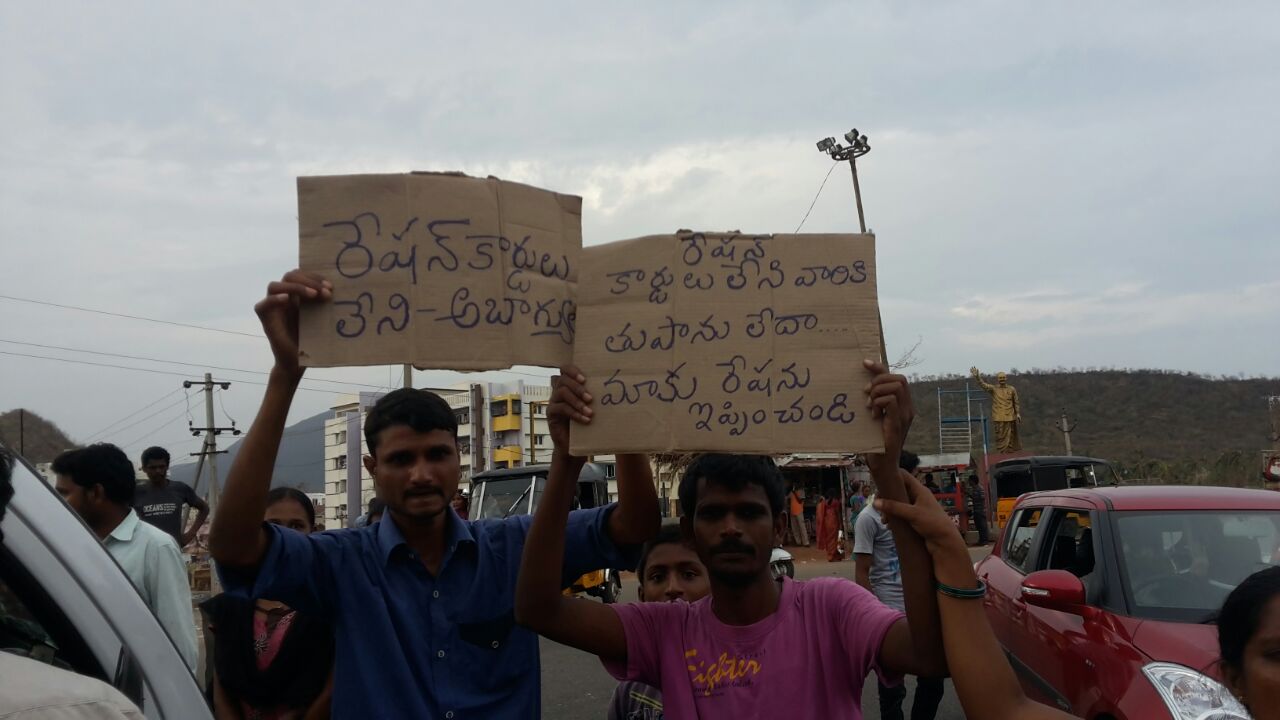 రేషన్ కార్డులు
లేని - అబాగ్యు
రేషన్
కార్డు లు లేని వారికి
తుపాను లేదా.....
మాకు రేషను
ఇప్పించండి
OCEANS
Fighter